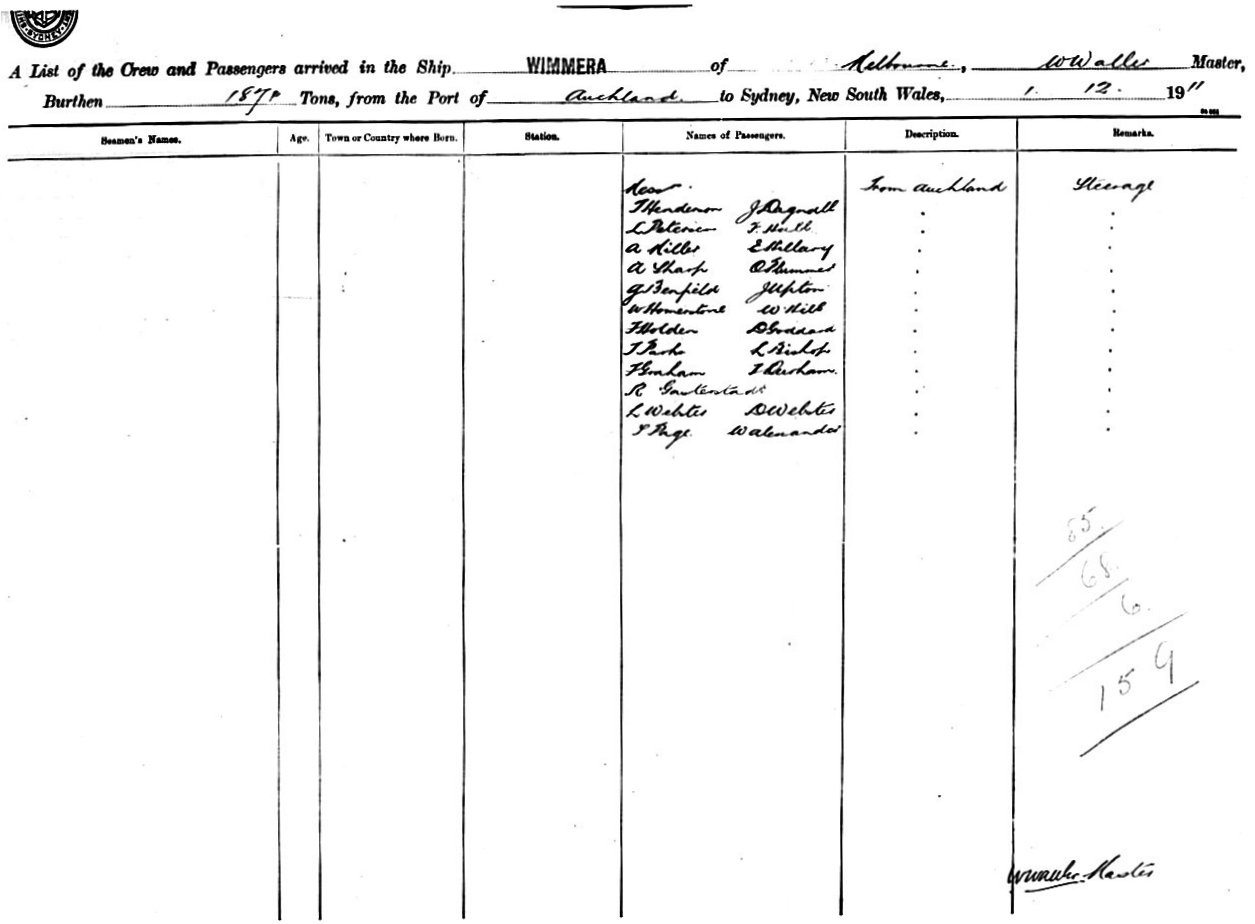 SYDNEY
A List of the Crew and Passengers arrived in the Ship WIMMERA of Melbourne, W Waller Master,
Burthen 1871 Tons, from the Port of Auckland to Sydney, New South Wales, 1. 12. 1911
Seamen's Names. Age. Town or Country where Born. Station. Names of Passengers. Description. Remarks.
Mess From Auckland Steerage
T Henderson J Dagnall
L Petersen F Hull
A Miller E Hillary
A Sharp O Plummer
G Benfield J Upton
W Homerstone W Hill
F Holden D Goddard
T Park L Bishop
F Graham I Durham.
R
L Webster D Webster
S Page. W Alexander
85.
68.
6.
159
W Waller Master